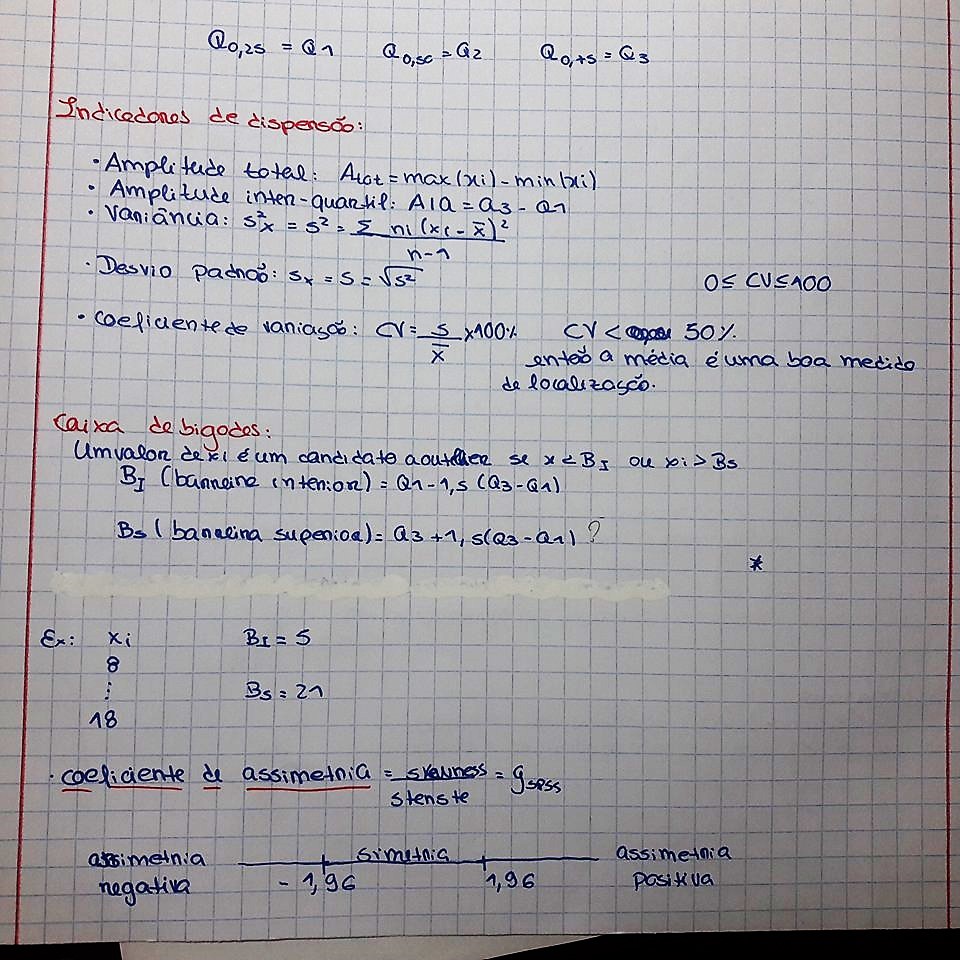 Q0,25 = Q1 Q0,50 = Q2 Q0,75 = Q3
Indicadores de dispersão:
• Amplitude total: Atot = max(xi) - min(xi)
• Amplitude inter-quartil: AIQ = Q3 - Q1
• Variância: s²x = s² = Σ ni (xi - x̄)² / n-1
• Desvio padrão: sx = s = √s² 0 ≤ CV ≤ 100
• Coeficiente de variação: CV = s/x̄ x100% CV < 50%.
então a média é uma boa medida
de localização.
Caixa de bigodes:
Um valor de xi é um candidato a outlier se x < BI ou xi > Bs
BI (barreira inferior) = Q1 - 1,5 (Q3 - Q1)
Bs (barreira superior) = Q3 + 1,5(Q3 - Q1) ?
*
Ex: xi BI = 5
8
⋮ Bs = 21
18
• coeficiente de assimetria = skewness / = gspss
assimetria simetria assimetria
negativa - 1,96 1,96 positiva